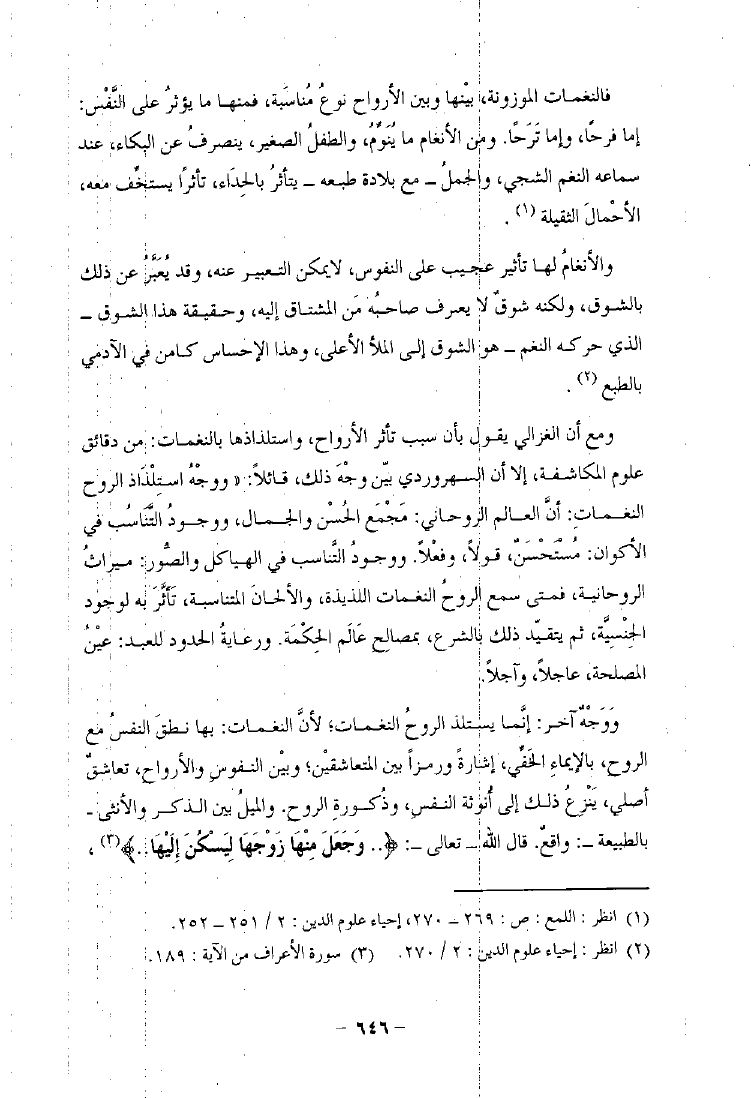 فالنغمات الموزونة، بيْنها وبين الأرواح نوعُ مُناسَبة، فمنهـا ما يؤثرُ على النَّفْس:
إما فرحًا، وإما تَرَحًا. ومن الأنغام ما يُنَوِّمُ، والطفلُ الصغير، ينصرفُ عن البكاء، عند
سماعه النغم الشجي، والجملُ ـ مع بلادة طبعه ـ يتأثرُ بالحِدَاء، تأثرًا يستخِّف معه،
الأحْمالَ الثقيلة (١) .
والأنغامُ لهـا تأثير عجيب على النفوس، لايمكن التـعبير عنه، وقد يُعَبَّرُ عن ذلك
بالشـوق، ولكنه شوقٌ لا يعـرف صاحبُه مَن المشتـاق إليه، وحـقيقة هذا الشوق ـ
الذي حركـه النغم ـ هو الشوق إلـى الملأ الأعلى، وهذا الإحساس كـامن في الآدمي
بالطبع (٢) .
ومع أن الغزالي يقـول بأن سبب تأثر الأرواح، واستلذاذها بالنغمات: من دقائق
علوم المكاشفـة، إلا أن السـهروردي بيّن وجْهَ ذلك، قـائلاً: « ووجْهُ اسـتِلْذَاذ الروح
النغـمـات: أنَّ العـالم الروحـاني: مَجْمَع الحُسْن والجـمـال، ووجـودُ التَّنَاسُب في
الأكوان: مُسْتَحْسَنٌ، قـولاً، وفعْلاً. ووجودُ التَّناسب في الهياكل والصُّور: مـيراثُ
الروحانيـة، فمتى سمع الروحُ النغمات اللذيذة، والألحانَ المتناسبـة، تَأَثَّرَ به لوجود
الجِنْسِيَّة، ثم يتقيّـد ذلك بالشرع، بمصالح عَالَم الحِكْمَة. ورعـايةُ الحدود للعبد: عيْنُ
المصلحة، عاجلاً، وآجلاً.
وَوَجْهٌ آخـر: إنَّمـا يسـتلذ الروحُ النغـمات؛ لأنَّ النغـمات: بهـا نـطقَ النفسُ مع
الروح، بالإيماءِ الخفِّي، إشارةً ورمزاً بين المتعاشقيْن؛ وبيْن النفـوس والأرواح، تعاشقٌ
أصلي، يَنْزِعُ ذلـك إلى أُنوثة النفس، وذُكـورةِ الروح. والميلُ بين الـذكـر والأنثى ـ
بالطبيعة ـ: واقعٌ. قال الله ـ تعالى ـ: ﴿.. وَجَعَلَ مِنْهَا زَوْجَهَا لِيَسْكُنَ إِلَيْهَا ..﴾(٣) ،
(١) انظر : اللمع : ص : ٢٦٩ ـ ٢٧٠، إحياء علوم الدين : ٢ / ٢٥١ ـ ٢٥٢.
(٢) انظر : إحياء علوم الدين : ٢ / ٢٧٠. (٣) سورة الأعراف من الآية : ١٨٩.
– ٦٤٦ –